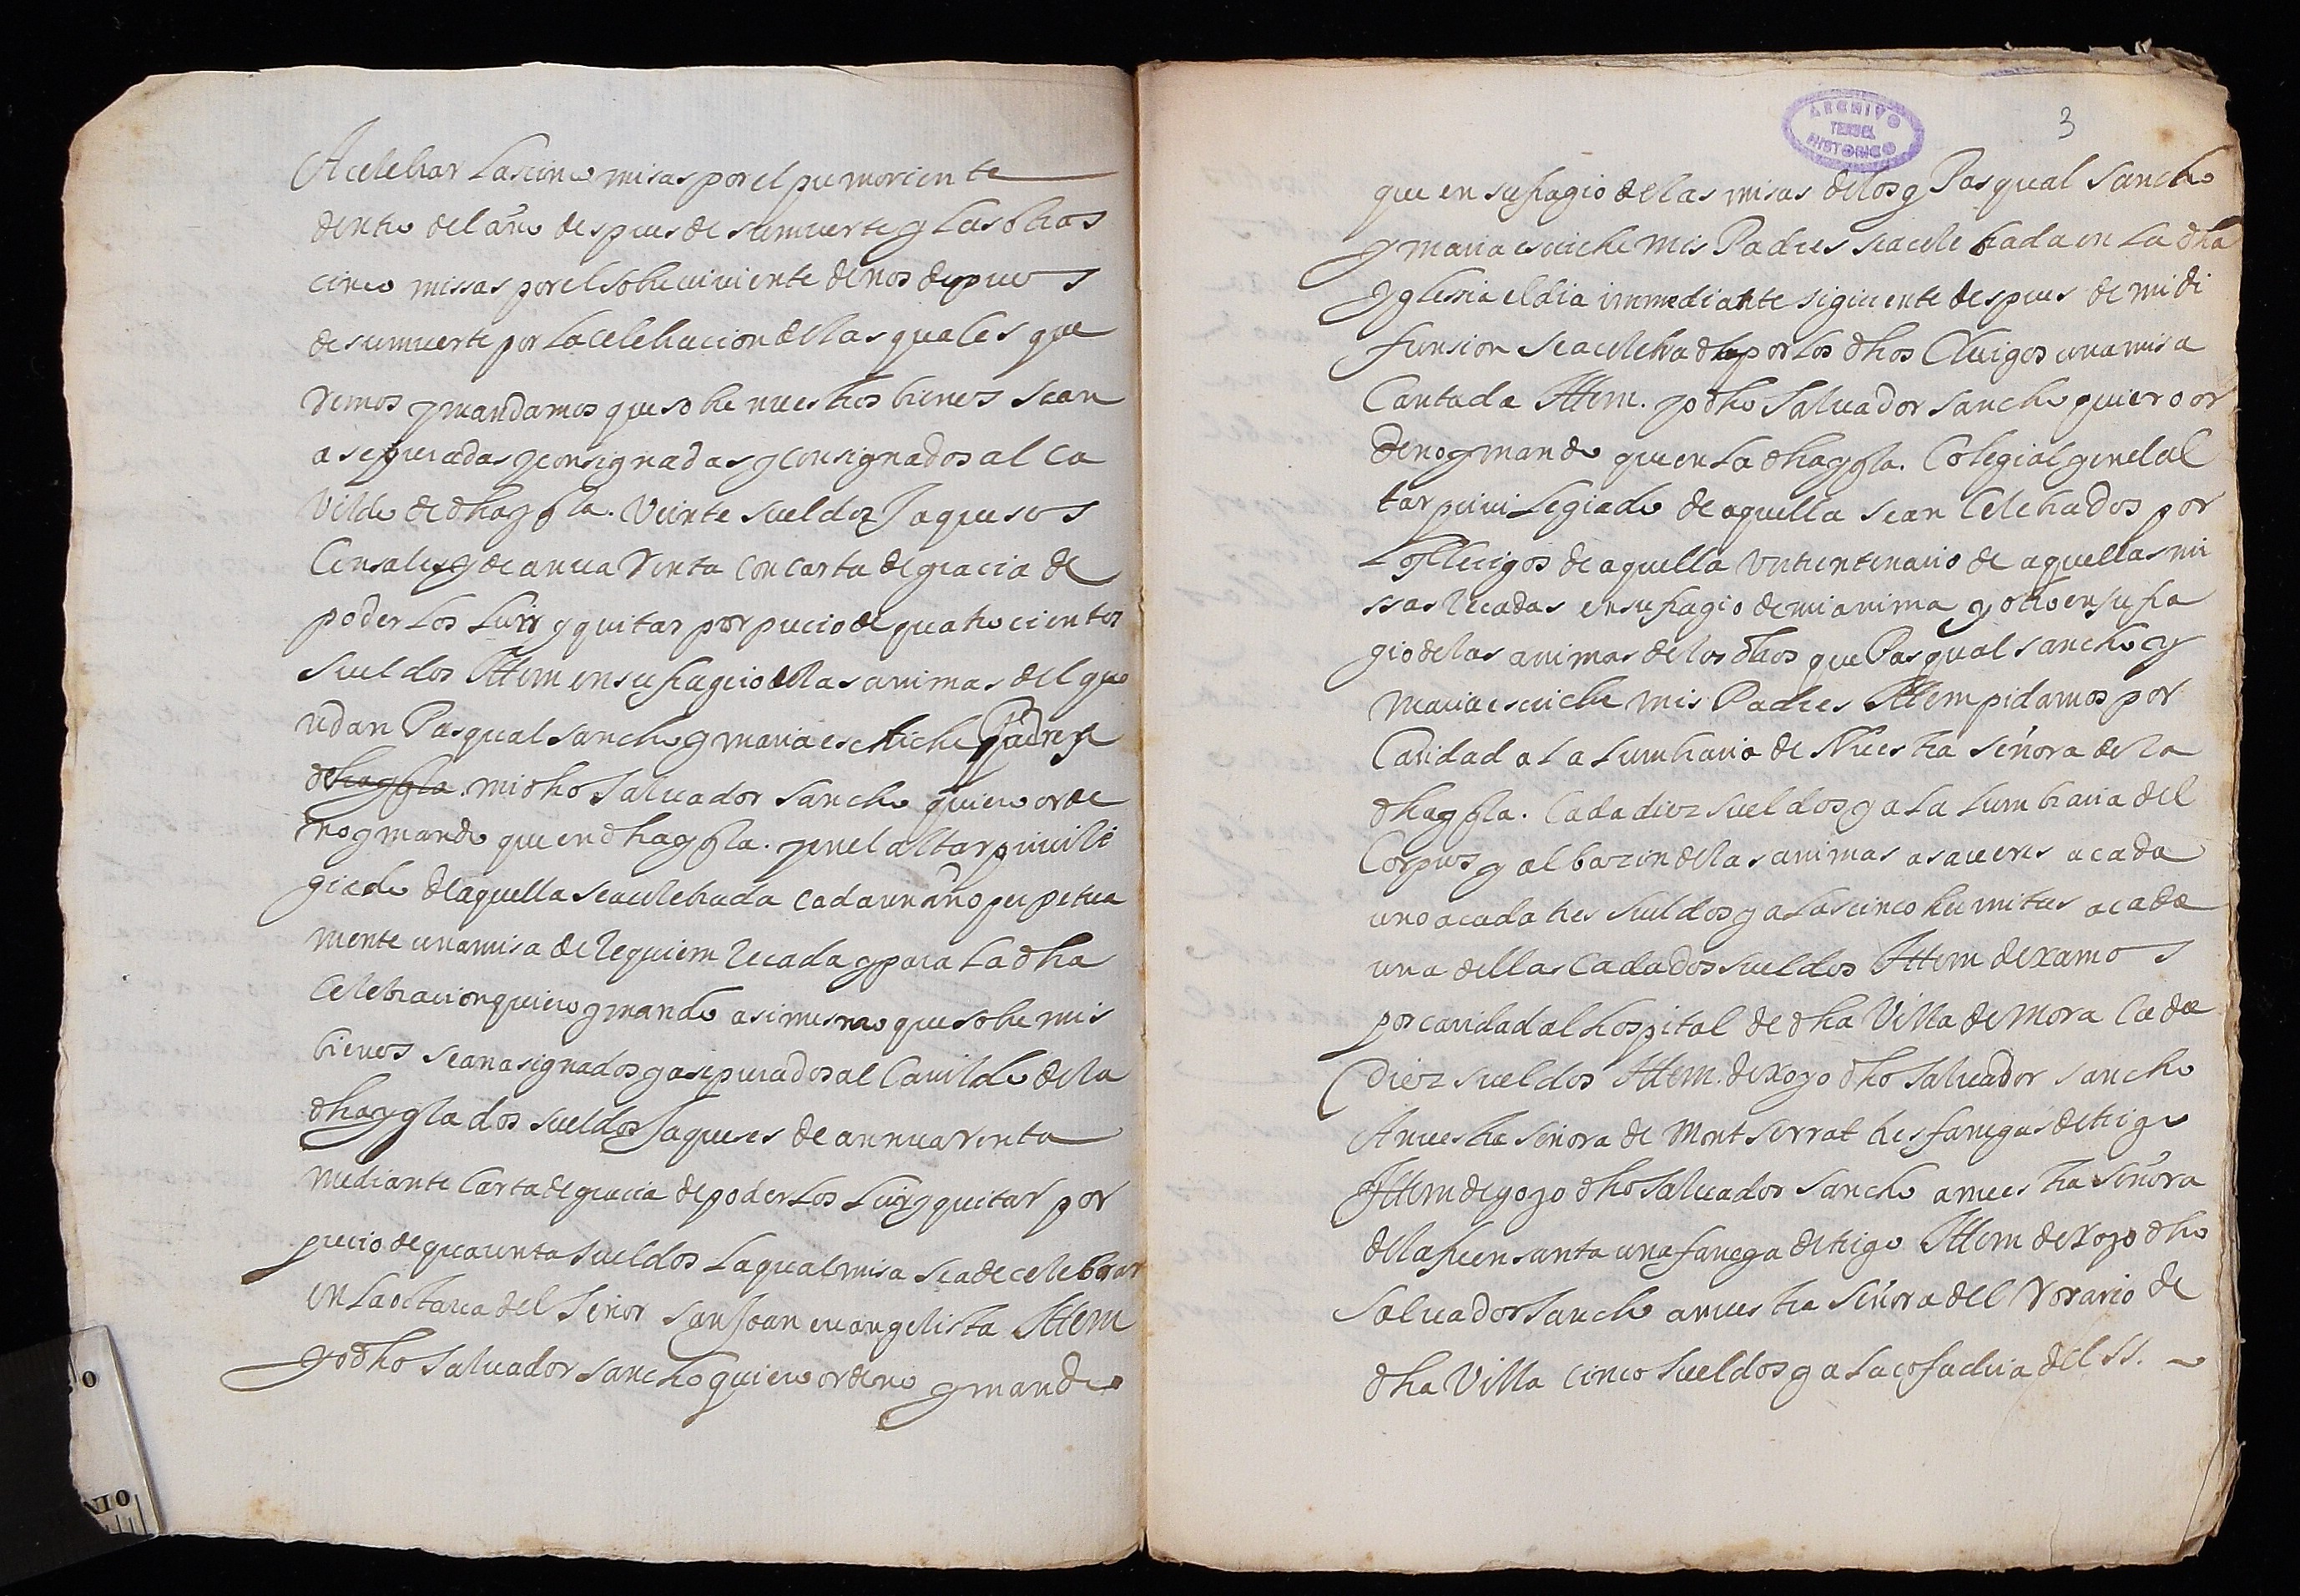 A celebrar las cinco misas por el premoriente
dentro del año despues de su muerte y las otras
cinco missas por el sobreuiuiente de nos depues
de su muerte por la celebracion de las quales que
remos y mandamos que sobre nuestros bienes sean
aseguradas y consignadas y consignados al ca
vildo de dha ygla. Veinte sueldos Jaqueses
Censales y de anua renta con carta de gracia de
poder los Luir y quitar por precio de quatrocientos
sueldos Ittem en sufragio de las animas del que
udan Pasqual Sancho y maria escriche Padres
dha ygla. mi dho Saluador Sancho quiero orde
no y mando que en dha ygla. y en el altar priuile
giado de aquella sea celebrada cada un año perpetua
mente una misa de requiem recada y para la dha
Celebracion quiero y mando asi mesmo que sobre mis
bienes sean asignados y asegurados al Cauildo de la
dha ygla dos sueldos Jaqueses de annua renta
mediante Carta de gracia de poder los Luir y quitar por
precio de quarenta sueldos la qual misa se a de celebrar
en la octaua del Señor San Joan euangelista Ittem
yo dho Saluador Sancho quiero ordeno y mando
ARCHIVO
TERUEL
HISTORICO
3
que en sufragio de las misas de los q Pasqual Sancho
y maria escriche mis Padres sea celebrada en la dha
Yglesia el dia immediante siguiente despues de mi di
funsion sea celebrada por los dhos Clerigos una misa
Cantada Ittem. yo dho Saluador Sancho quiero or
deno y mando que en la dha ygla. Colegial y en el al
tar priuilegiado de aquella sean Celebrados por
los Clerigos de aquella un trentenario de aquellas mi
ssas recadas en sufragio de mi anima y otro en sufra
gio de las animas de los dhos que Pasqual sancho y
maria escriche mis Padres Ittem pidamos por
Caridad a la Lumbraria de Nuestra Señora de la
dha ygla. Cada diez sueldos y a la Lumbraria del
Corpus y al bazin de las animas a saueres a cada
uno a cada tres sueldos y a las cinco hermitas a cada
una dellas Cada dos sueldos Ittem dexamos
por caridad al hospital de dha Villa de Mora Cada
Diez sueldos Ittem. dexo yo dho Saluador Sancho
A nuestra Señora de Mont Serrat tres fanegas de trigo
Ittem dego yo dho Saluador Sancho a nuestra Señora
de la fuen santa una fanega de trigo Ittem dexo yo dho
Saluador Sancho a nuestra Señora del Rosario de
dha Villa cinco sueldos y a la cofadria del SS.